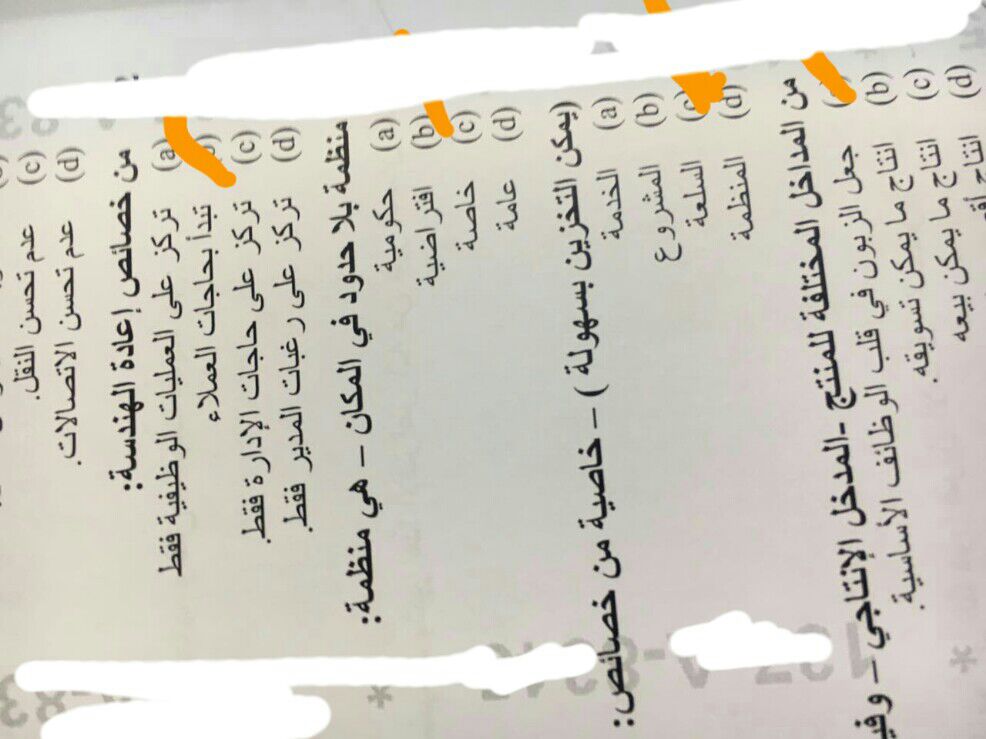 (c) عدم تحسن النقل.
(d) عدم تحسن الاتصالات.
من خصائص إعادة الهندسة:
(a) تركز على العمليات الوظيفية فقط
تبدأ بحاجات العملاء
(c) تركز على حاجات الإدارة فقط.
(d) تركز على رغبات المدير فقط.
منظمة بلا حدود في المكان – هي منظمة:
(a) حكومية
(b) افتراضية
(c) خاصة
(d) عامة
(يمكن التخزين بسهولة) – خاصية من خصائص:
(a) الخدمة
(b) المشروع
السلعة
(d) المنظمة
من المداخل المختلفة للمنتج -المدخل الإنتاجي – وفي
جعل الزبون في قلب الوظائف الأساسية.
(b) انتاج ما يمكن تسويقه.
(c) انتاج ما يمكن بيعه
(d) انتاج